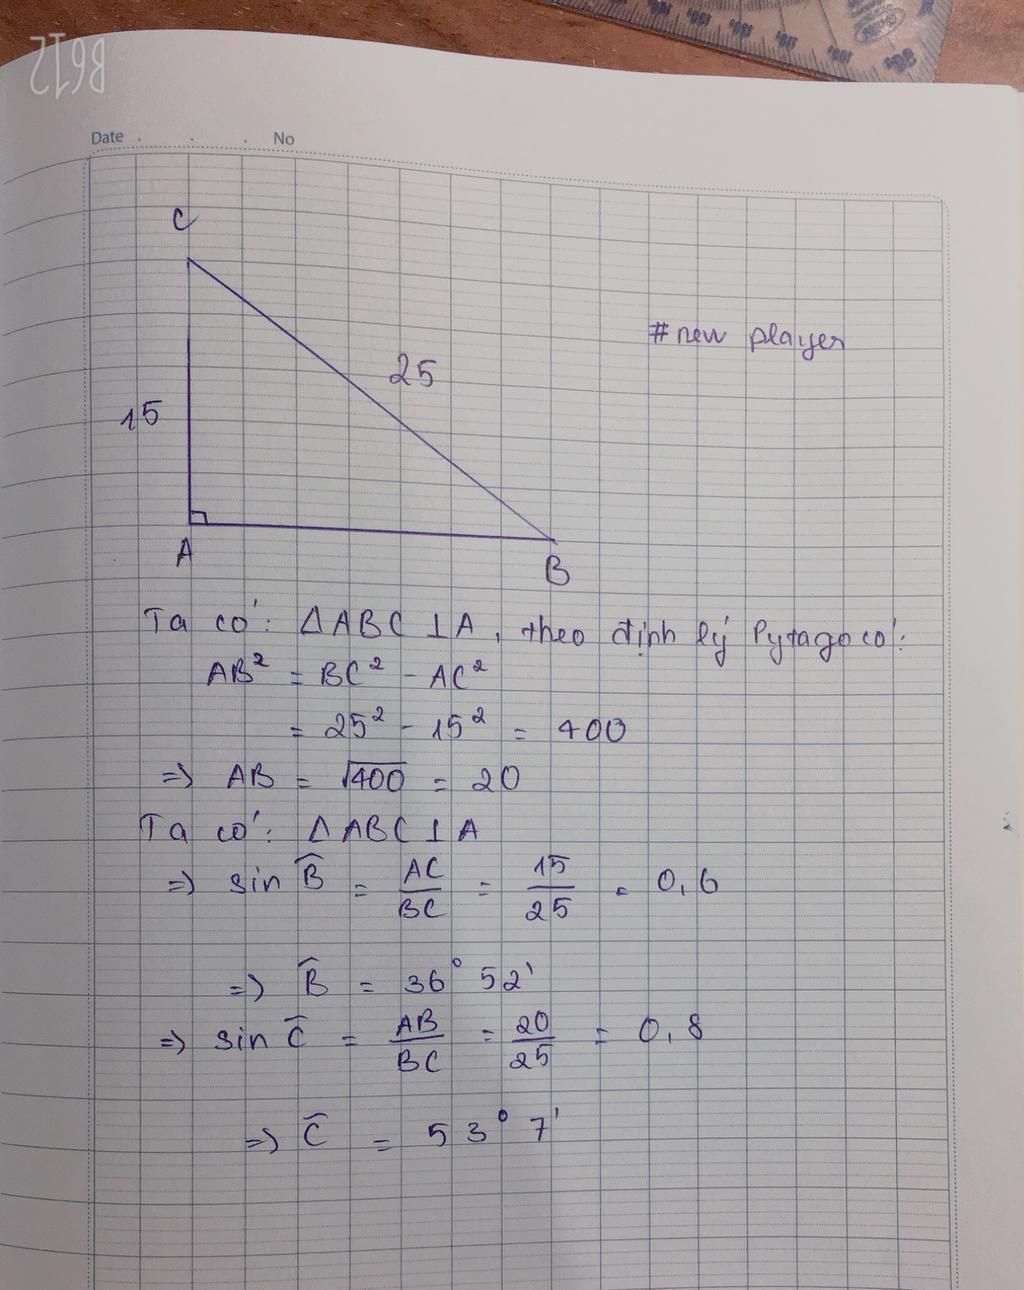 B612
Date . . . No
C
#new player
25
15
A
B
Ta có: ΔABC ⊥ A, theo định lý Pytago có:
AB² = BC² - AC²
= 25² - 15² = 400
=> AB = √400 = 20
Ta có: ΔABC ⊥ A
=> sin B̂ = AC/BC = 15/25 = 0,6
=> B̂ = 36° 52'
=> sin Ĉ = AB/BC = 20/25 = 0,8
=> Ĉ = 53° 7'